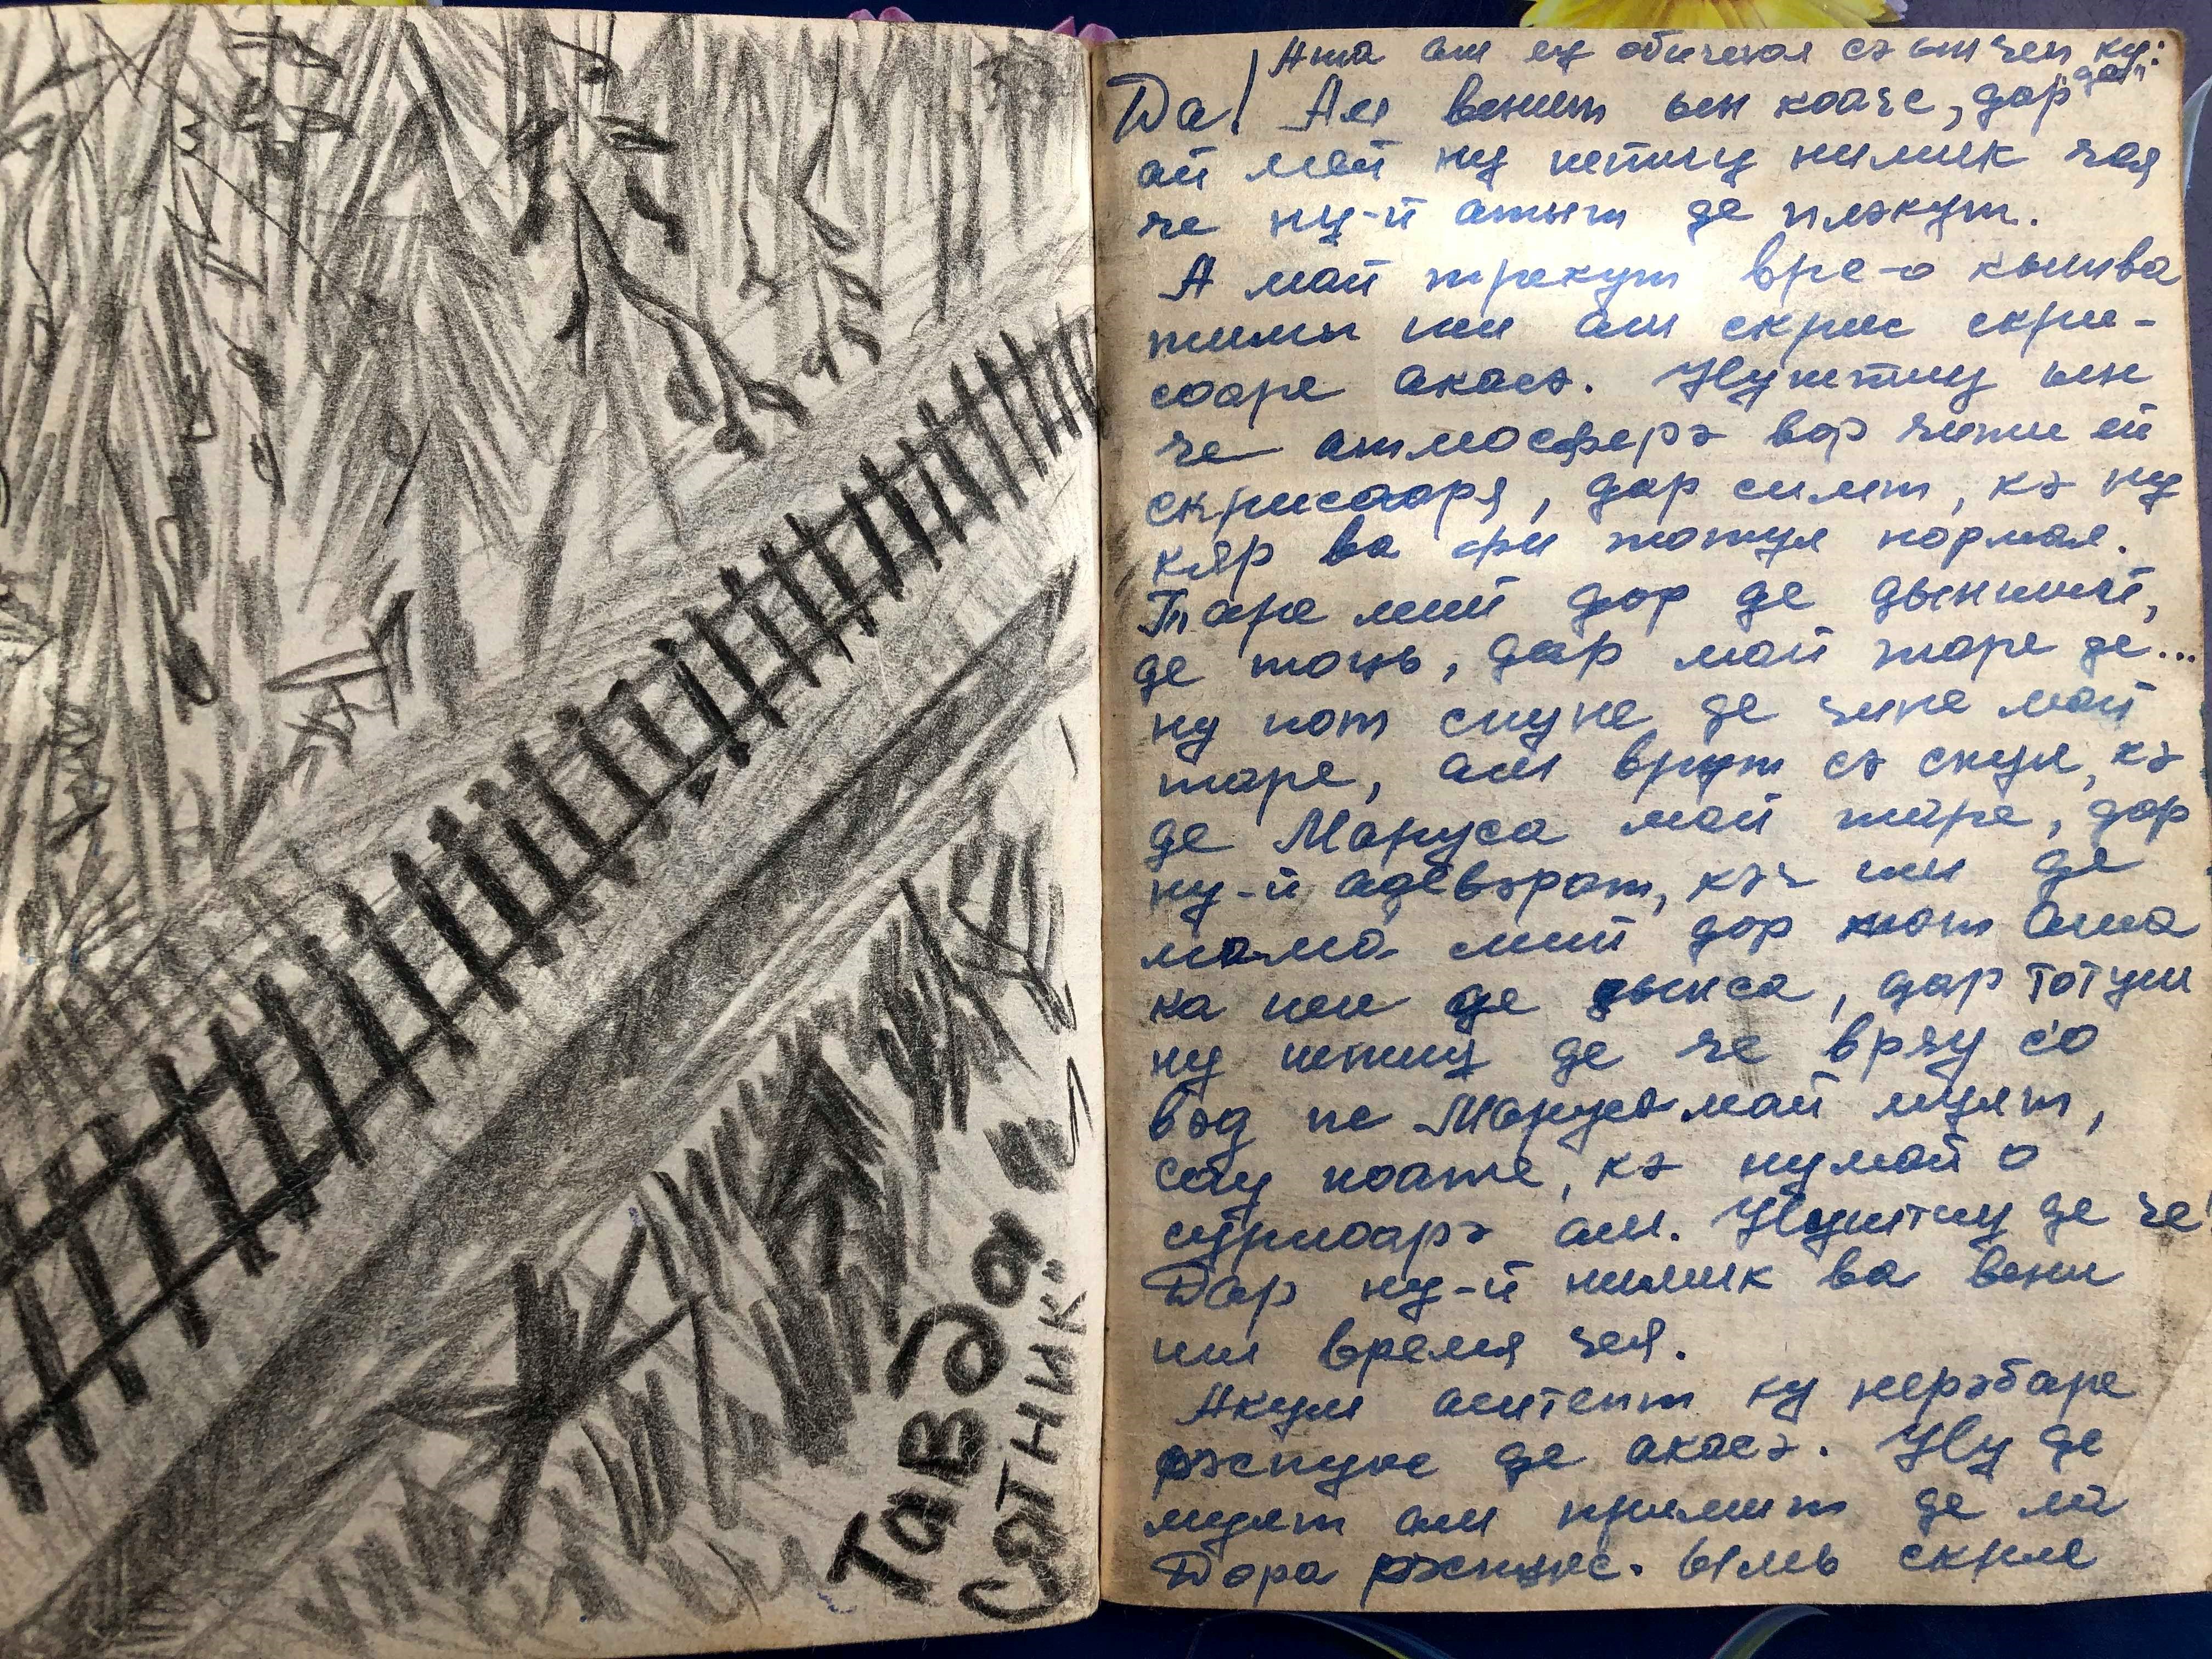 Тавда
Сятник"
Аша ам еу обичеюл сэ ынчеп ку:
Да! Ам венит ын коаче, дар дей
ай мей ну штиу нимик чая
че ну-й атыт де плэкут.
А май трекут вре-о кытва
тимп ши ам скрис скри-
соаре акасэ. Нуштиу ын
че атмосферэ вор чити ей
скрисооря, дар симт, кэ ну
кяр ва фи тотул нормал.
Таре мий дор де дынший,
де тоць, дар май таре де...
ну пот спуне де чине май
таре, ам врут сэ спун, кэ
де Маруса май таре, дар
ну-й адевэрат, кэч ши де
мама мий дор тот аша
ка ши де дынса, дар тотуш
ну штиу де че вряу с'о
вэд пе Марусэ май мулт,
сау поате, кэ нумай о
суриоарэ ам. Нуштиу де че
Дар ну-й нимик ва вени
ши время чея.
Акум аштепт ку нерэбдаре
рэспунс де акасэ. Ну де
мулт ам примит де ла
Дора рэспунс. Ымь скрие